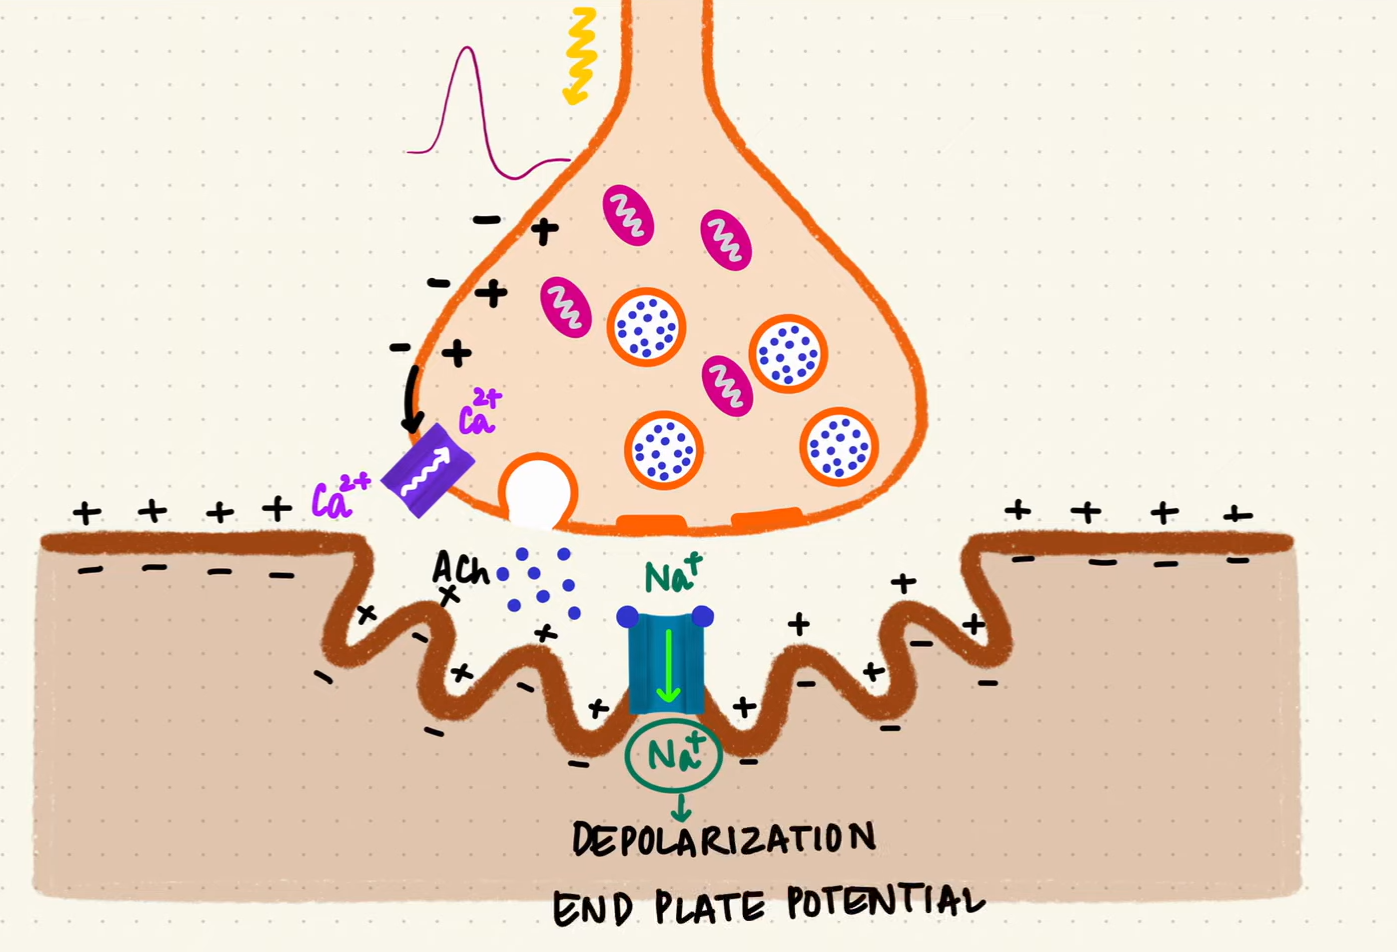 Ca²⁺
Ca²⁺
ACh
Na⁺
Na⁺
DEPOLARIZATION
END PLATE POTENTIAL